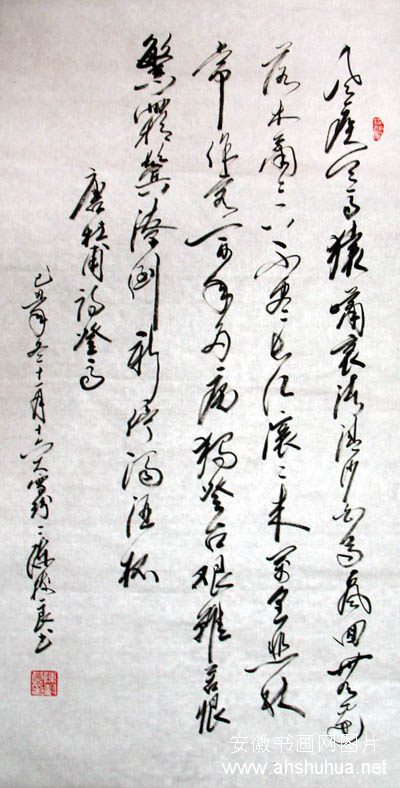 风疾天高猿嘯哀渚清沙白鳥飛回無邊
落木蕭々下不盡長江滾々来萬里悲秋
常作客百年多病獨登台艰難苦恨
繁霜鬢潦倒新停濁酒杯
唐杜甫詩登高
己丑年冬十一月十六大雪紛々陈良书
安徽书画网图片
www.ahshuhua.net